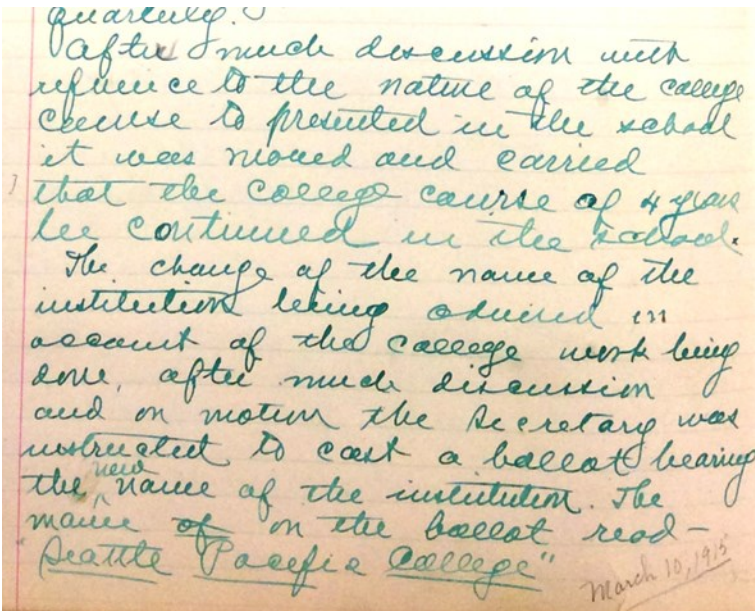 quarterly.
After much discussion with
refrence to the nature of the college
course to presented in the school
it was moved and carried
that the college course of 4 years
be continued in the school.
The change of the name of the
institution being in
account of the college work being
done, after much discussion
and on motion the Secretary was
instructed to cast a ballot bearing
the new name of the institution. The
name of on the ballot read—
"Seattle Pacific College"
March 10, 1915